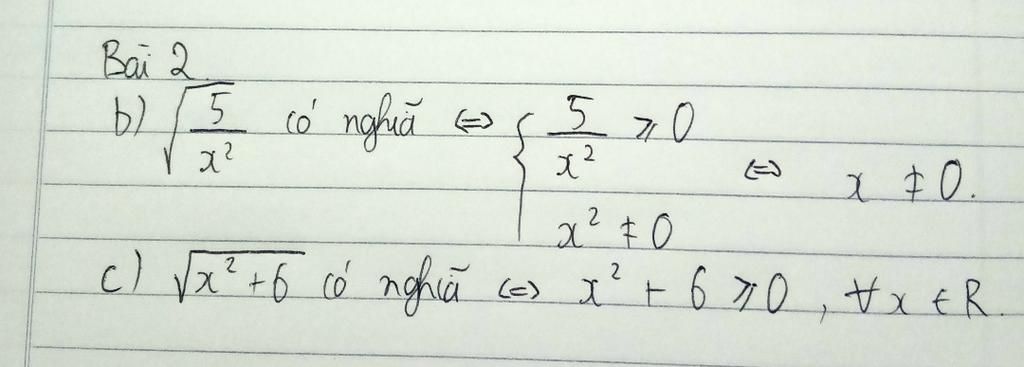 Bài 2
b) √(5/x²) có nghĩa ⇔ { 5/x² ⩾ 0 ; x² ≠ 0 ⇔ x ≠ 0.
c) √(x²+6) có nghĩa ⇔ x² + 6 ⩾ 0 , ∀x ∈ R.